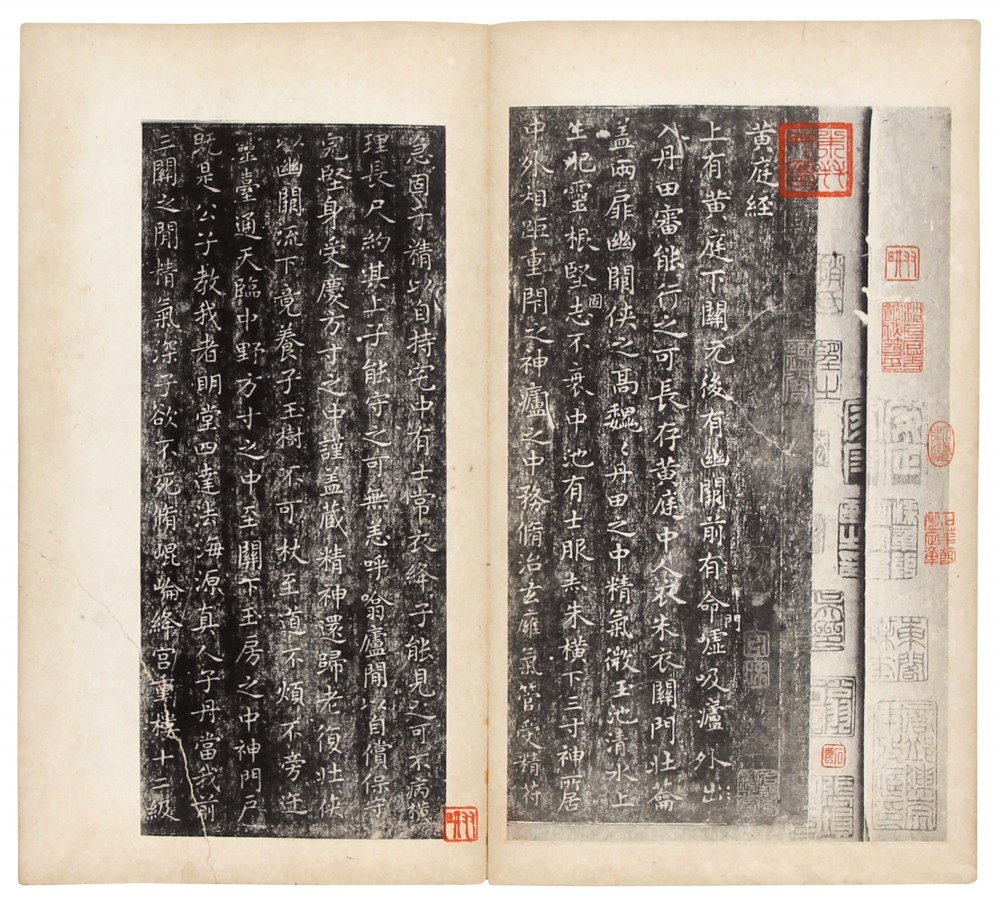 黄庭經
上有黄庭下關元後有幽闕前有命門噓吸廬外出
入丹田審能行之可長存黄庭中人衣朱衣關門壯籥
盖兩扉幽闕俠之高魏〻丹田之中精氣微玉池清水上
生肥靈根堅固志不衰中池有士服赤朱橫下三寸神所居
中外相距重閇之神廬之中務脩治玄㢕氣管受精符
急固子精以自持宅中有士常衣絳子能見之可不病橫
理長尺約其上子能守之可無恙呼噏廬間以自償保守
完堅身受慶方寸之中謹盖藏精神還歸老復壯俠
以幽闕流下竟養子玉樹不可杖至道不煩不旁迕
靈臺通天臨中野方寸之中至關下玉房之中神門戶
既是公子教我者明堂四達法海源真人子丹當我前
三關之間精氣深子欲不死脩崐崘絳宮重樓十二級